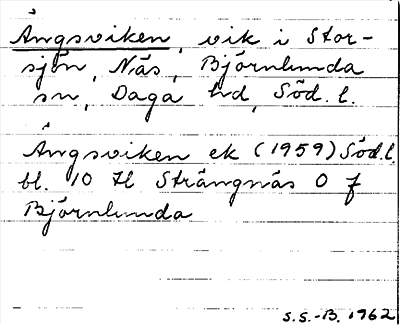 Ängsviken, vik i Stor-
sjön, Näs, Björnlunda
sn, Daga hd, Söd. l.
Ängsviken ek (1959) Söd. l.
bl. 10 Strängnäs O f
Björnlunda
S.S.-B. 1962